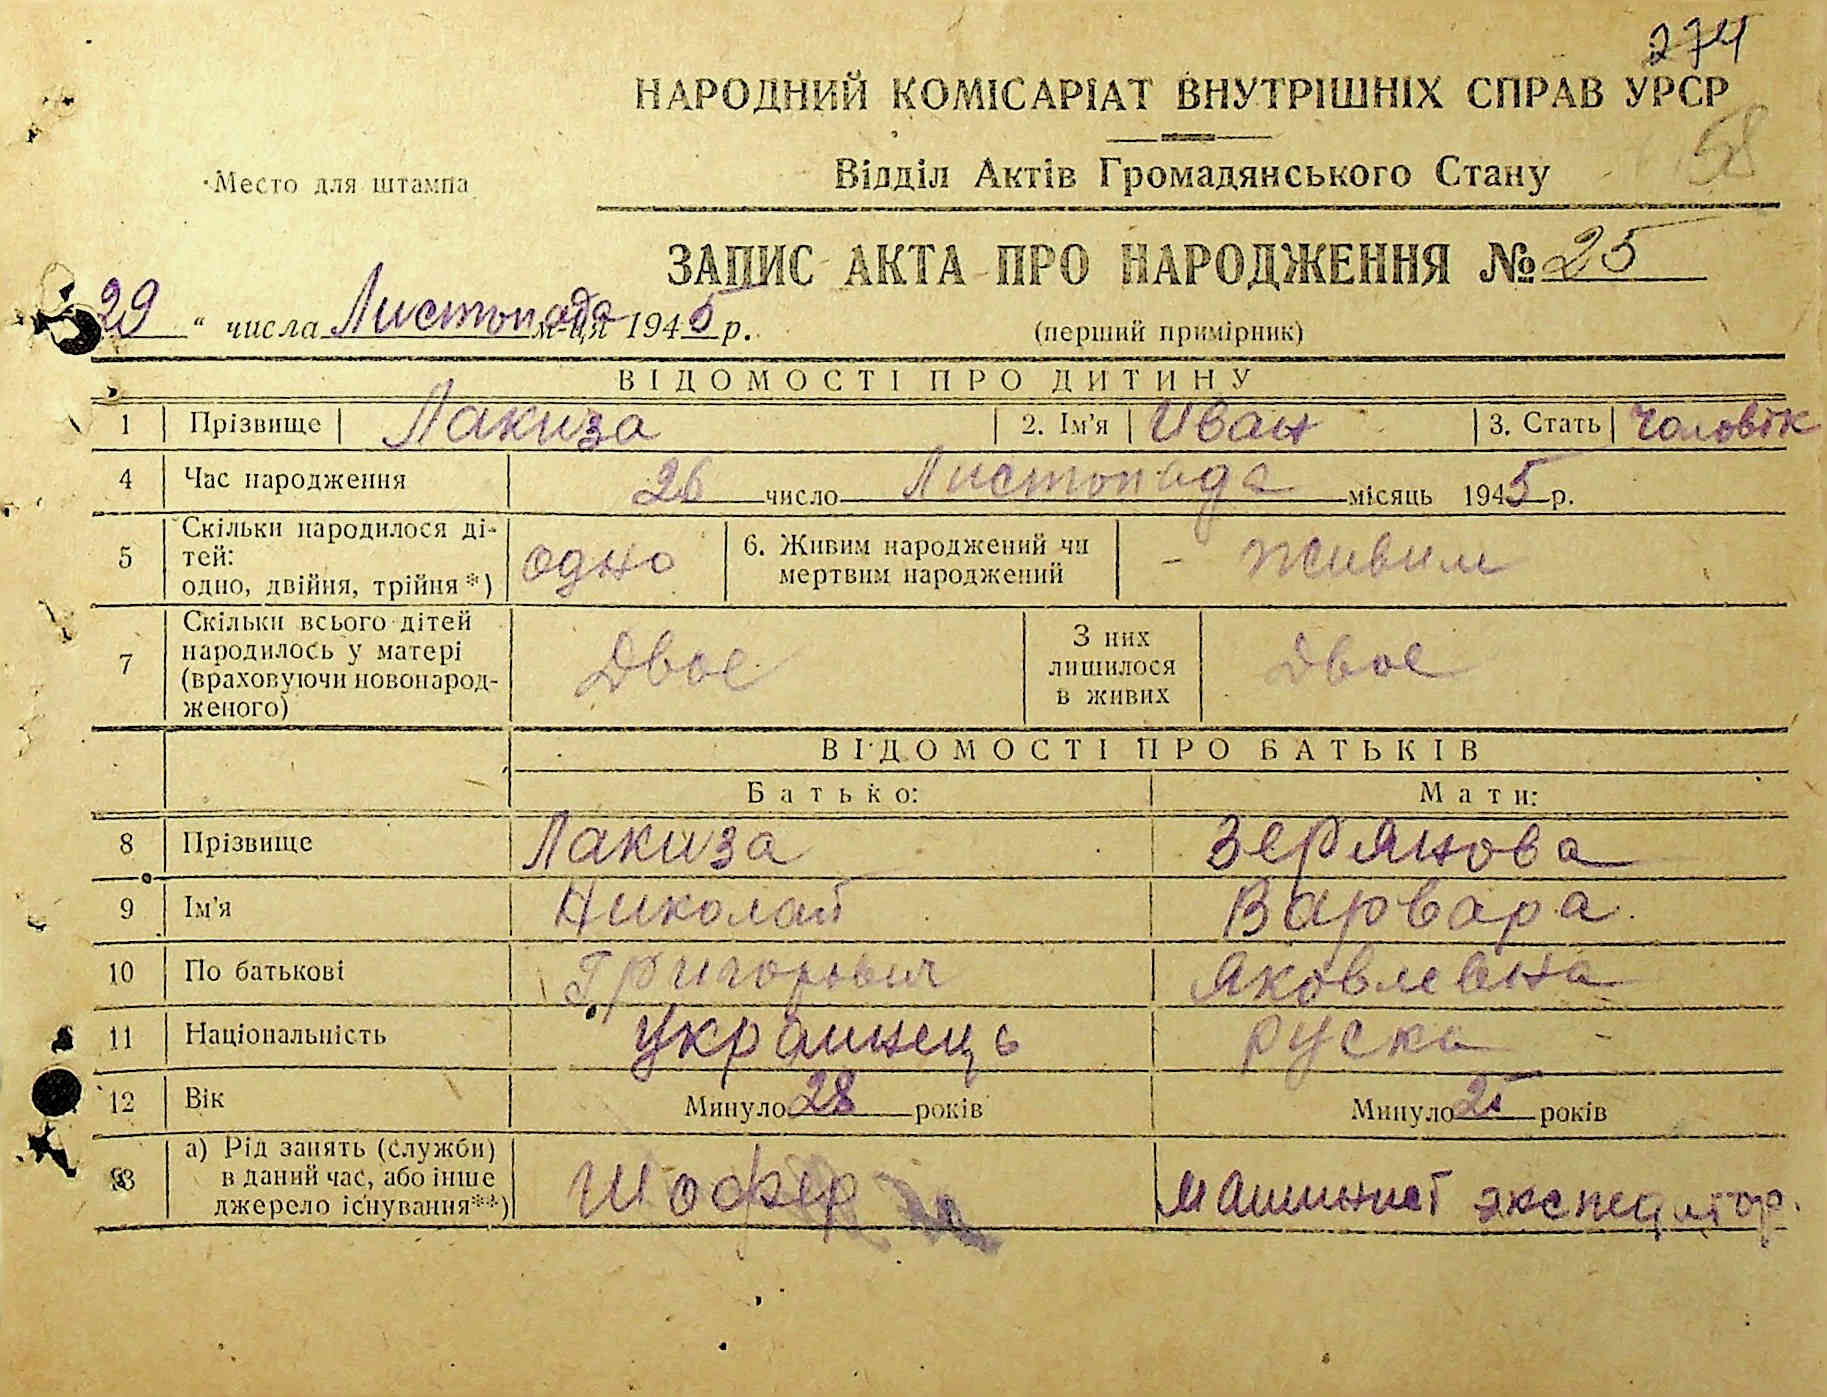 274
НАРОДНИЙ КОМІСАРІАТ ВНУТРІШНІХ СПРАВ УРСР
58
Место для штампа
Відділ Актів Громадянського Стану
ЗАПИС АКТА ПРО НАРОДЖЕННЯ № 25
29 " числа Листопада м-ця 1945 р.
(перший примірник)
ВІДОМОСТІ ПРО ДИТИНУ
1 Прізвище Лакиза 2. Ім'я Иван 3. Стать Чоловік
4 Час народження 26 число Листопада місяць 1945 р.
5 Скільки народилося ді-
тей:
одно, двійня, трійня*) одно 6. Живим народжений чи
мертвим народжений - Живим
7 Скільки всього дітей
народилось у матері
(враховуючи новонарод-
женого) Двое З них
лишилося
в живих Двое
ВІДОМОСТІ ПРО БАТЬКІВ
Батько: Мати:
8 Прізвище Лакиза Зерянова
9 Ім'я Николай Варвара
10 По батькові Григорович Яковлевна
11 Національність Украинець руска
12 Вік Минуло 28 років Минуло 25 років
13 а) Рід занять (служби)
в даний час, або інше
джерело існування**) Шофер Машинист